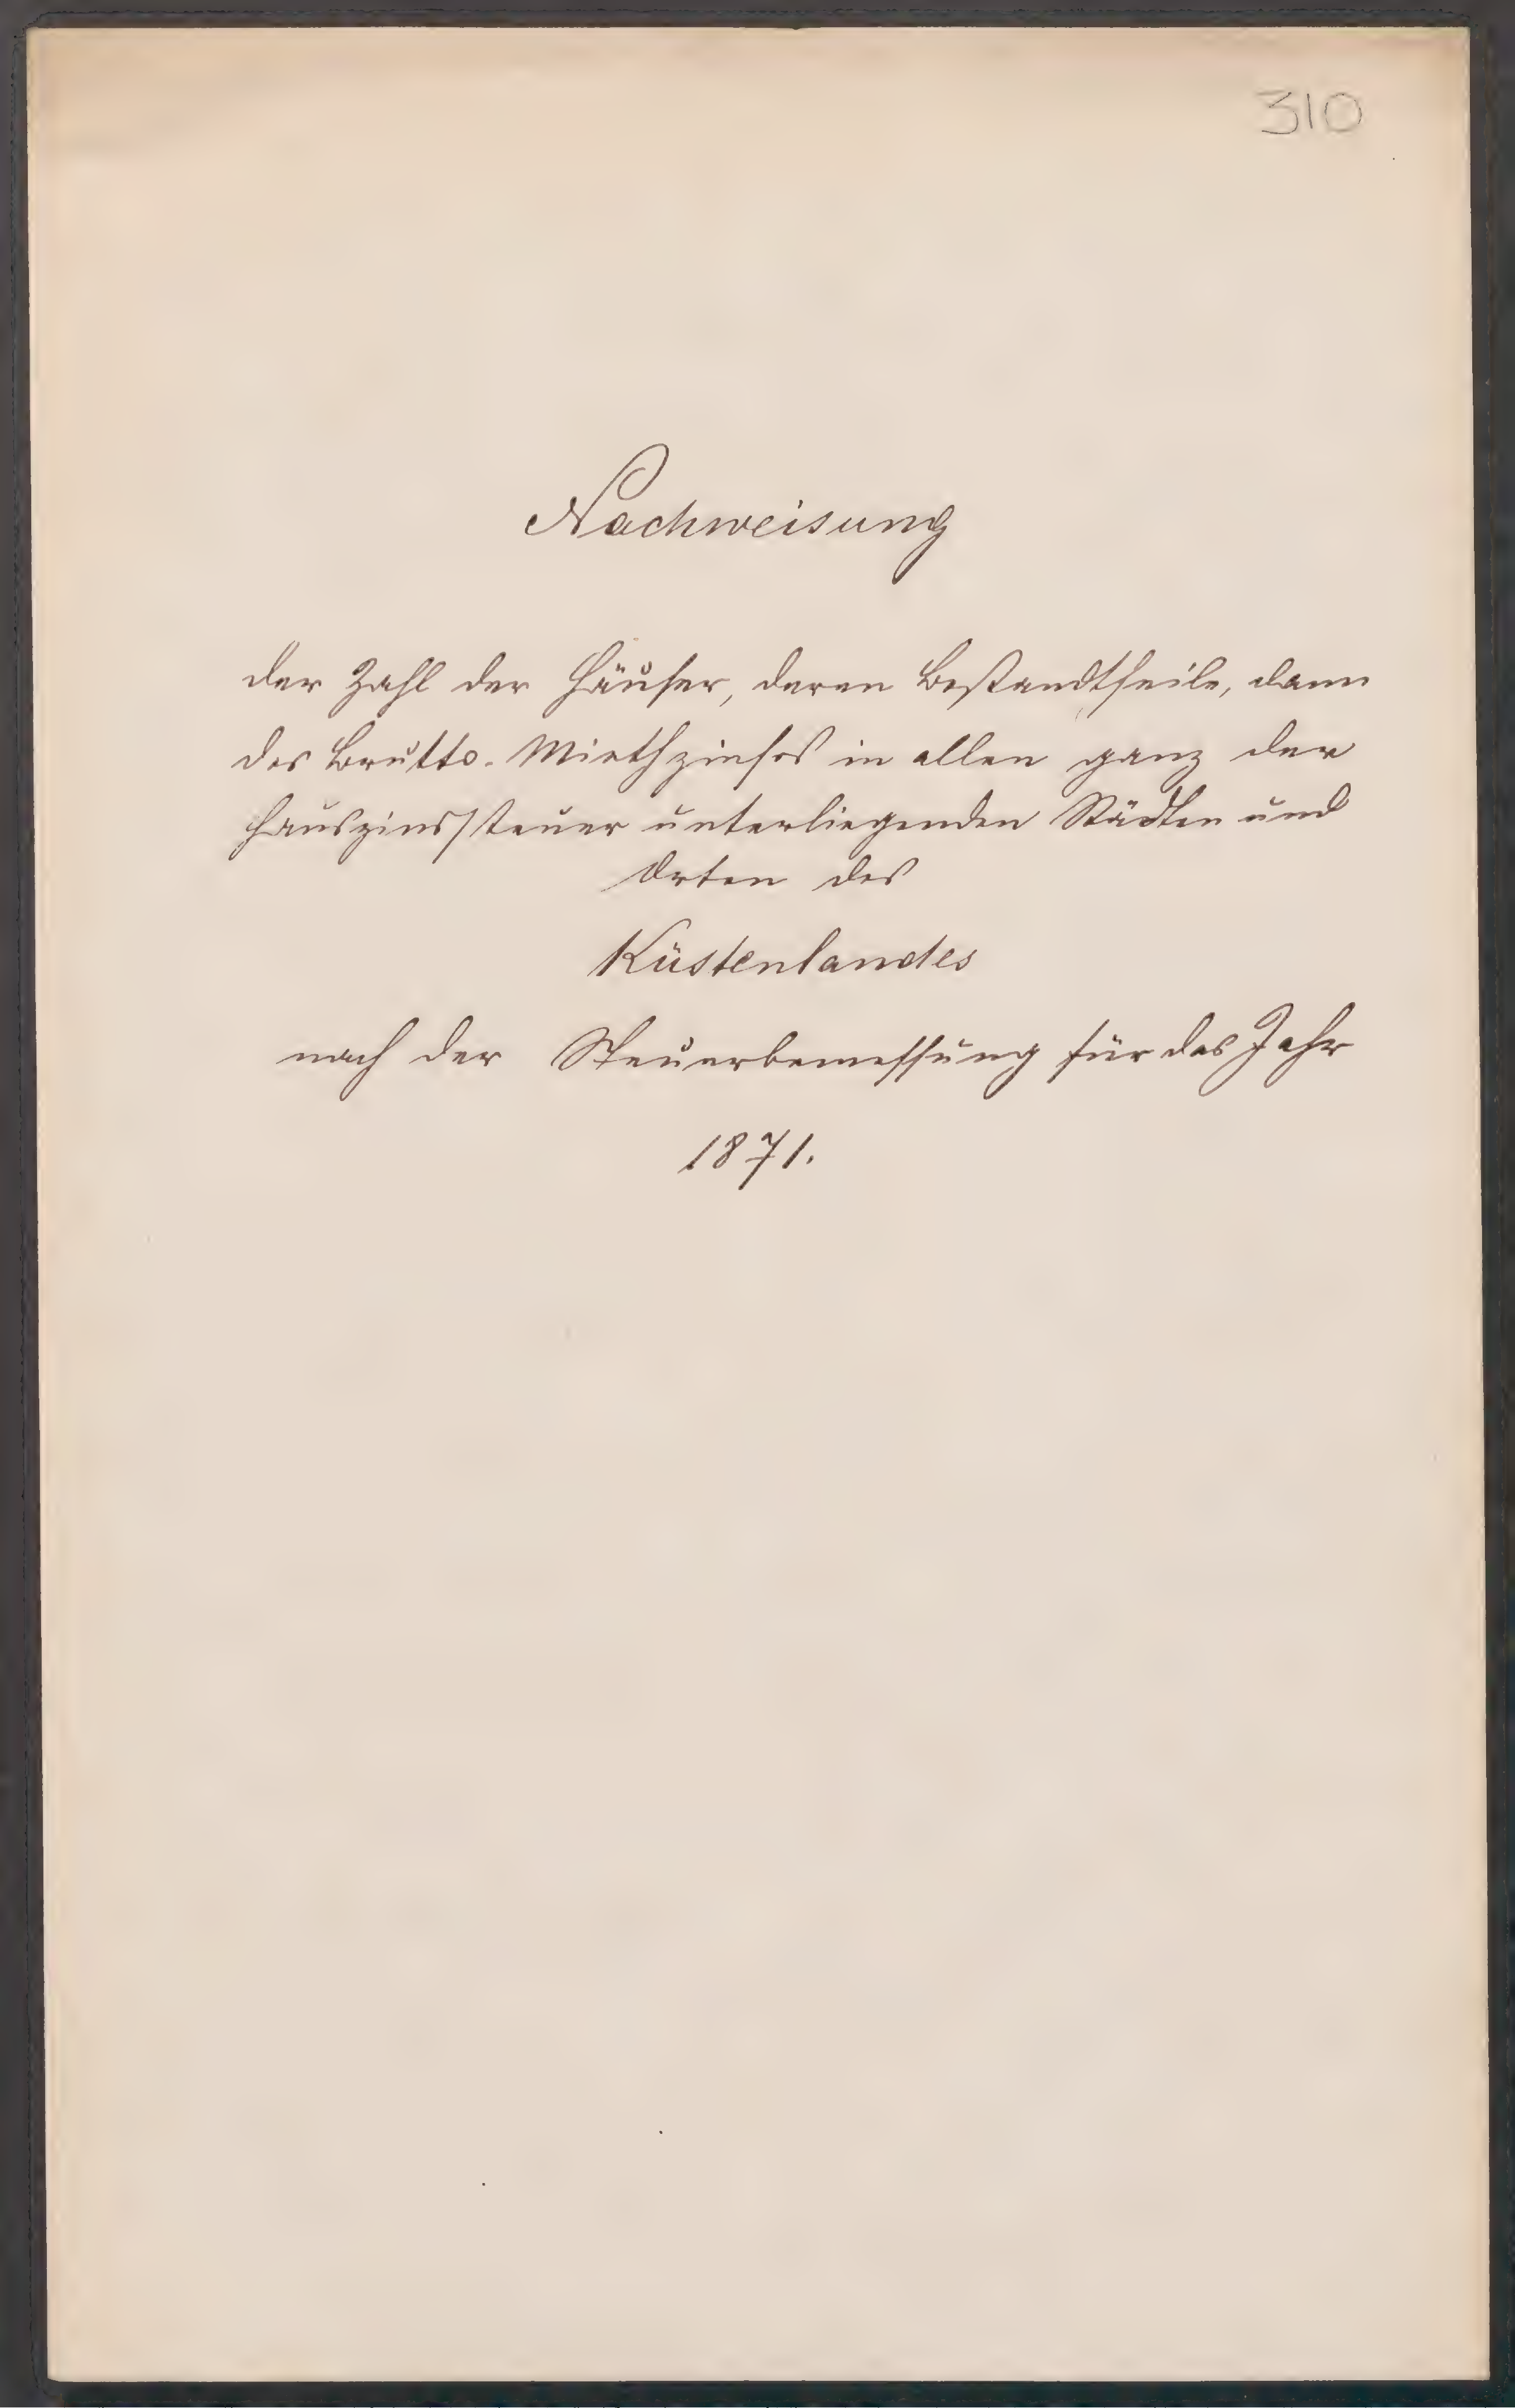 310
Nachweisung
der Zahl der Häuser, deren Bestandtheile, dann
des Brutto-Miethzinses in allen ganz der
Hauszinssteuer unterliegenden Städten und
Orten des
Küstenlandes
nach der Steuerbemessung für das Jahr
1871.